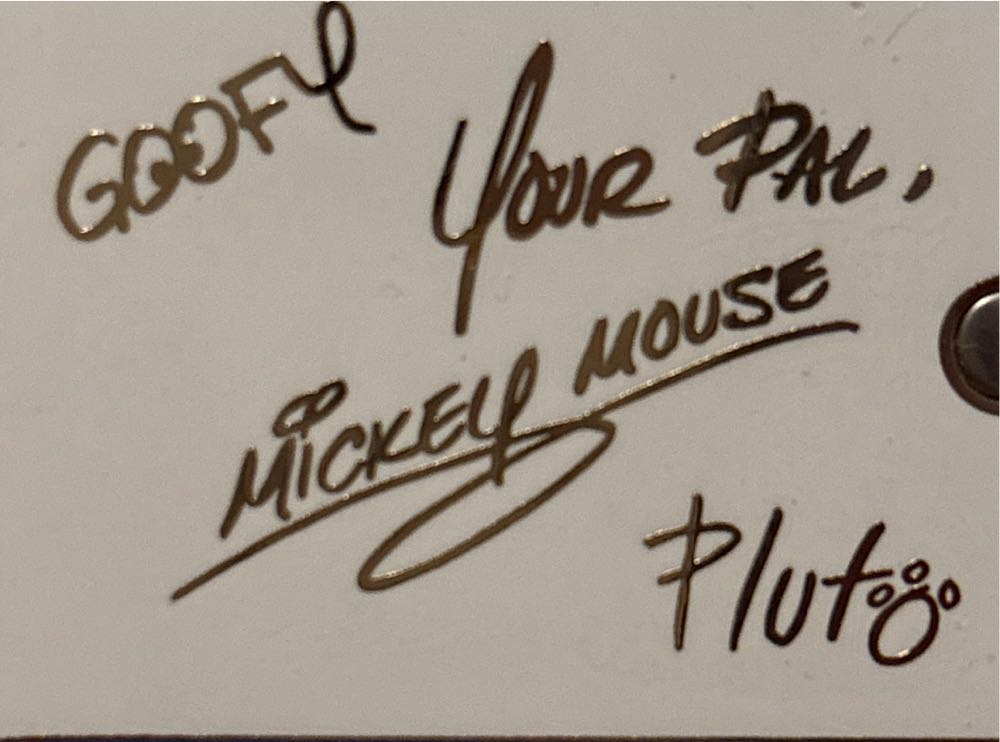 GOOFY
YOUR PAL,
MICKEY MOUSE
Pluto